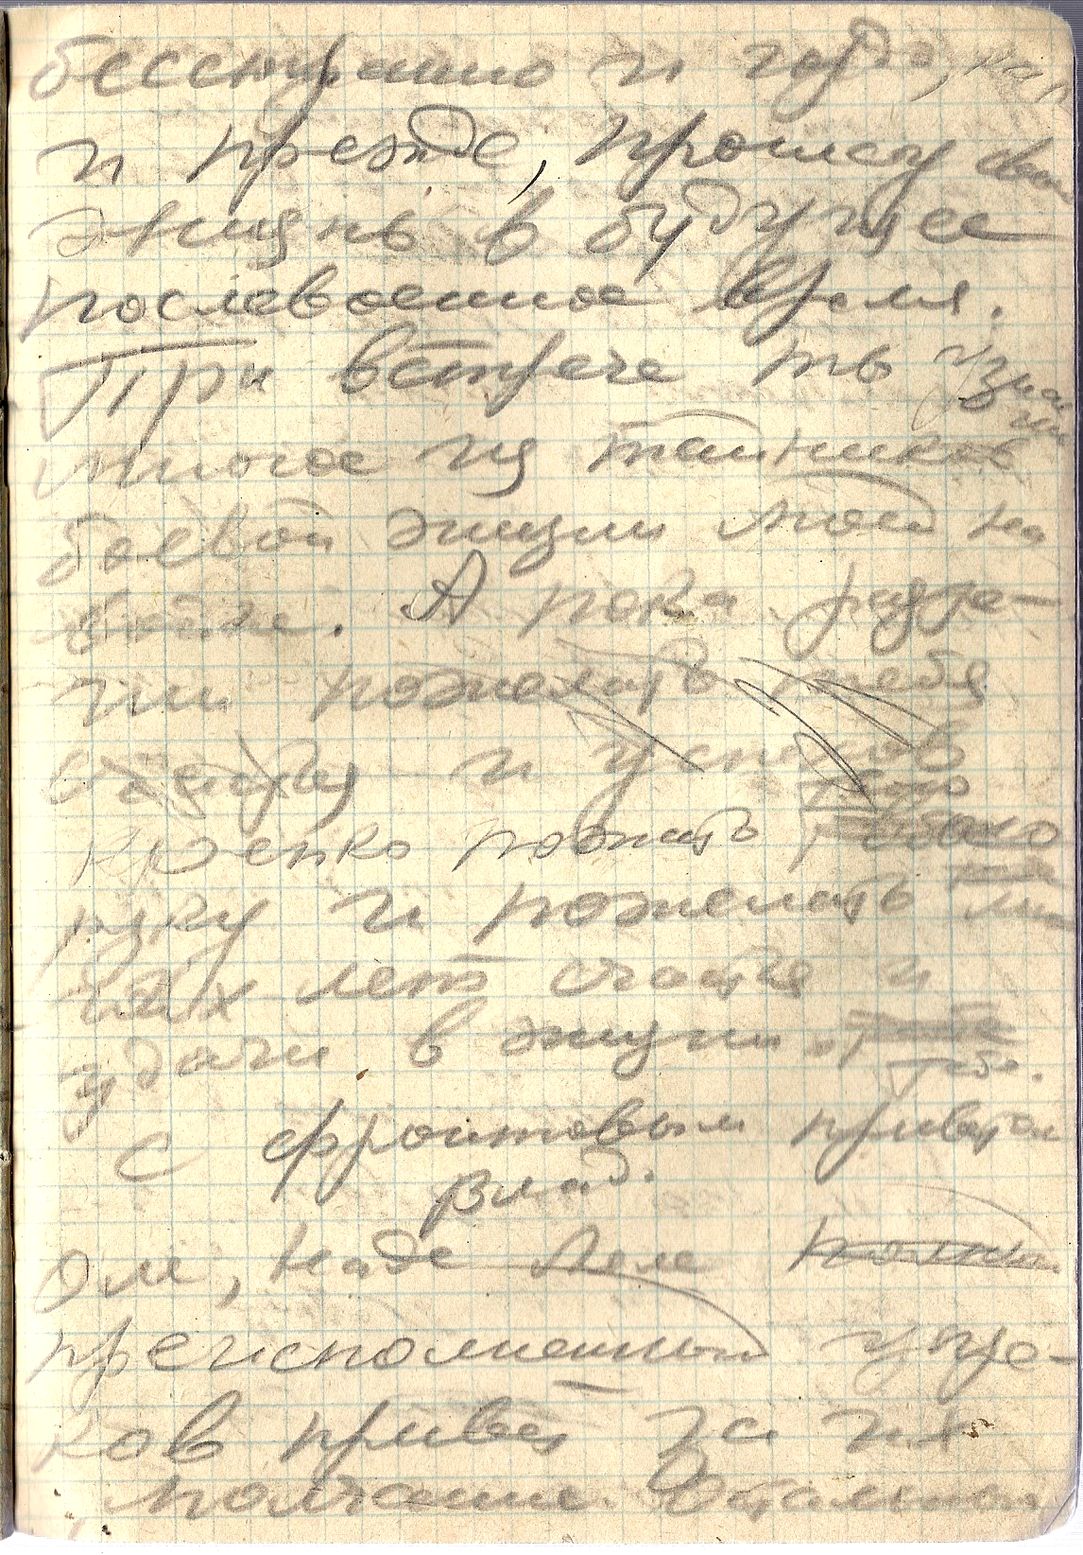 бесстрашно и гордо, как
и прежде, пронесу свою
жизнь в будущее
послевоенное время.
При встрече ты узнаешь
многое из тайников
боевой жизни моей на
войне. А пока разре-
ши пожелать тебе
бодрости и успехов
крепко пожать твою
руку и пожелать мно
гих лет счастья и
удачи в жизни
тебе.
С фронтовым приветом
Влад.
Оле, Наде, Леле полный
преисполненный упре-
ков привет за их
молчание. Остальным